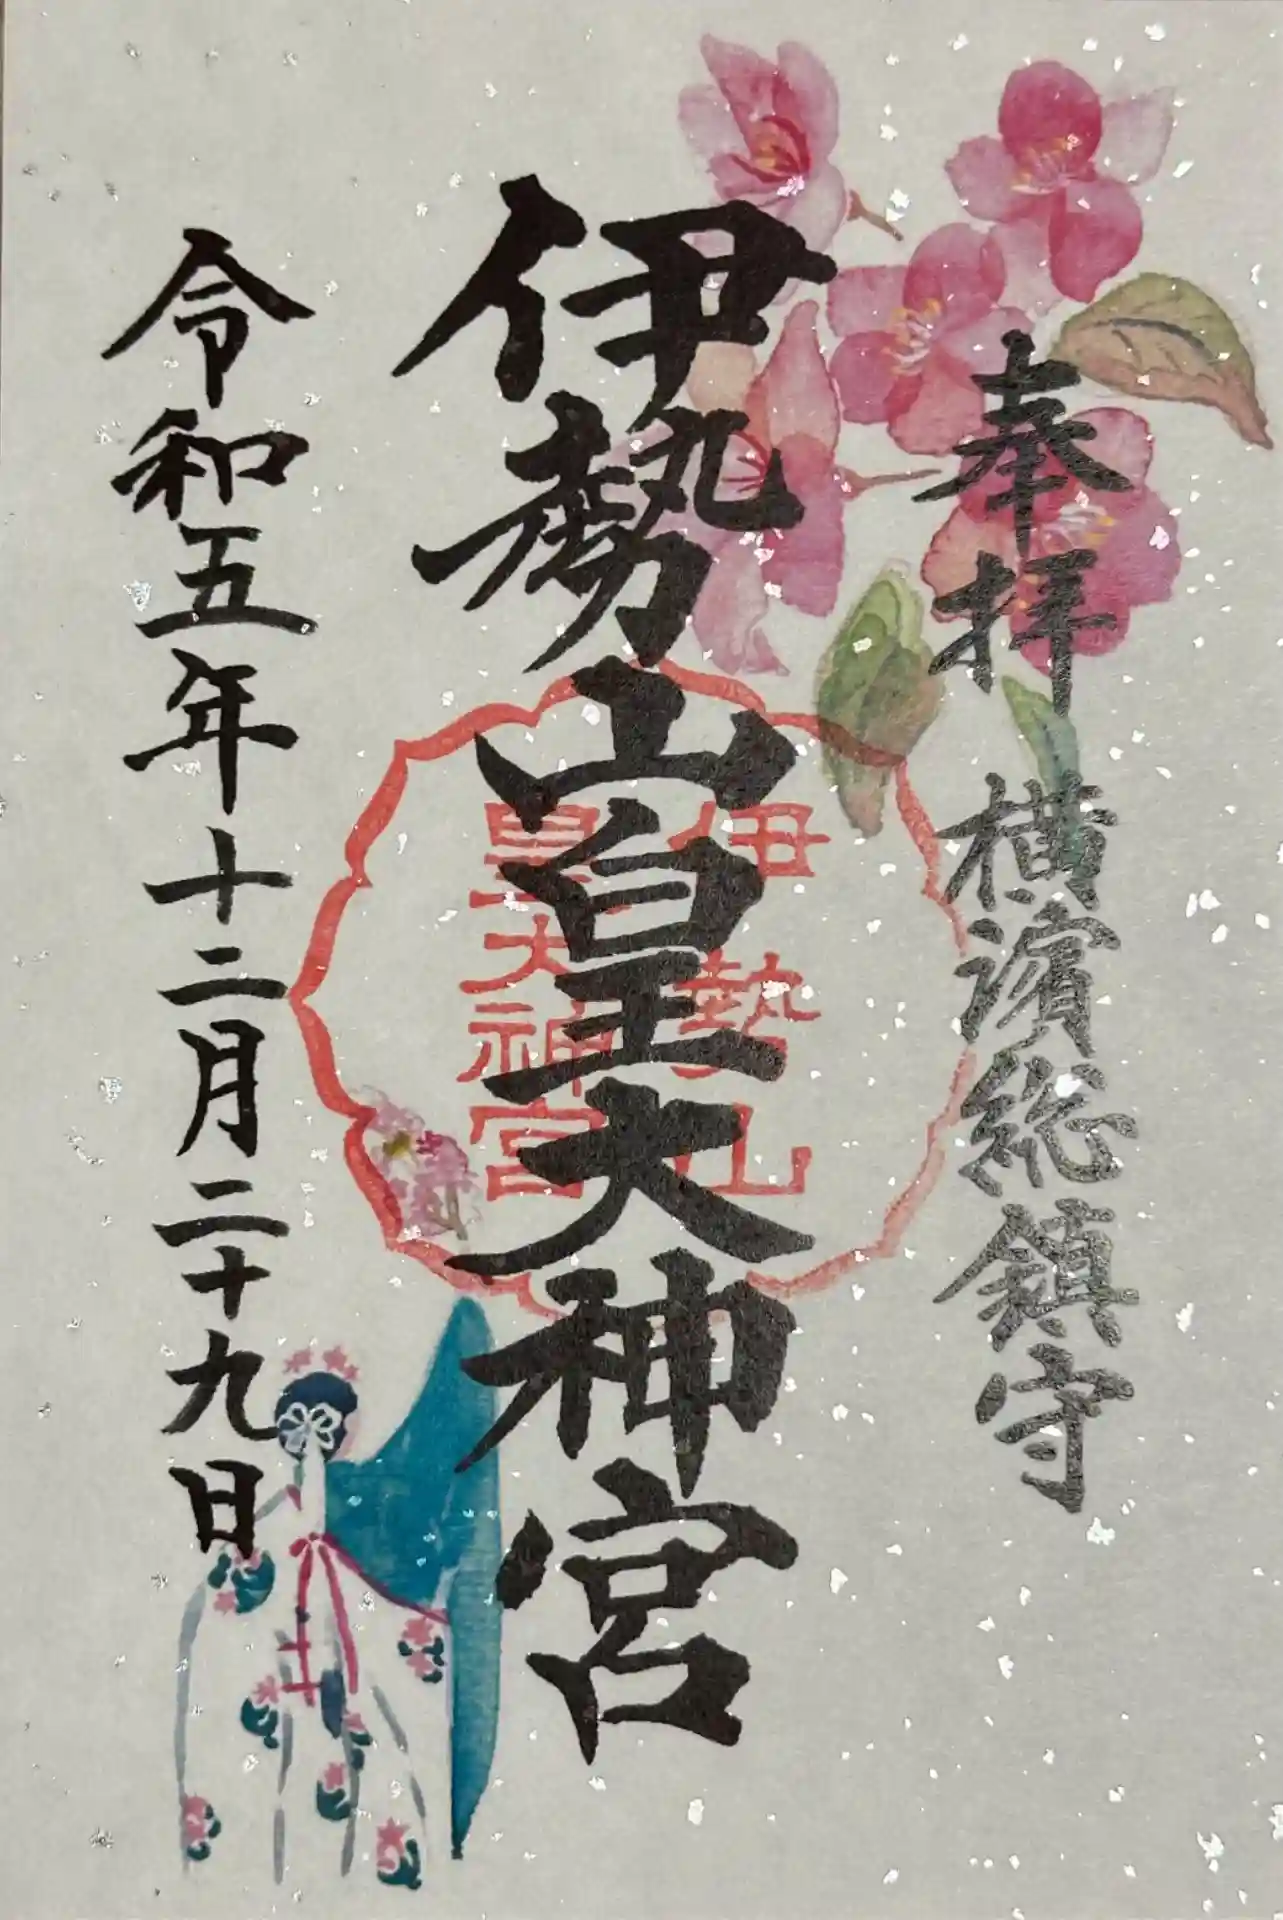 奉拝 横濱総鎮守
伊勢山皇大神宮
伊勢山
皇大神宮
令和五年十二月二十九日